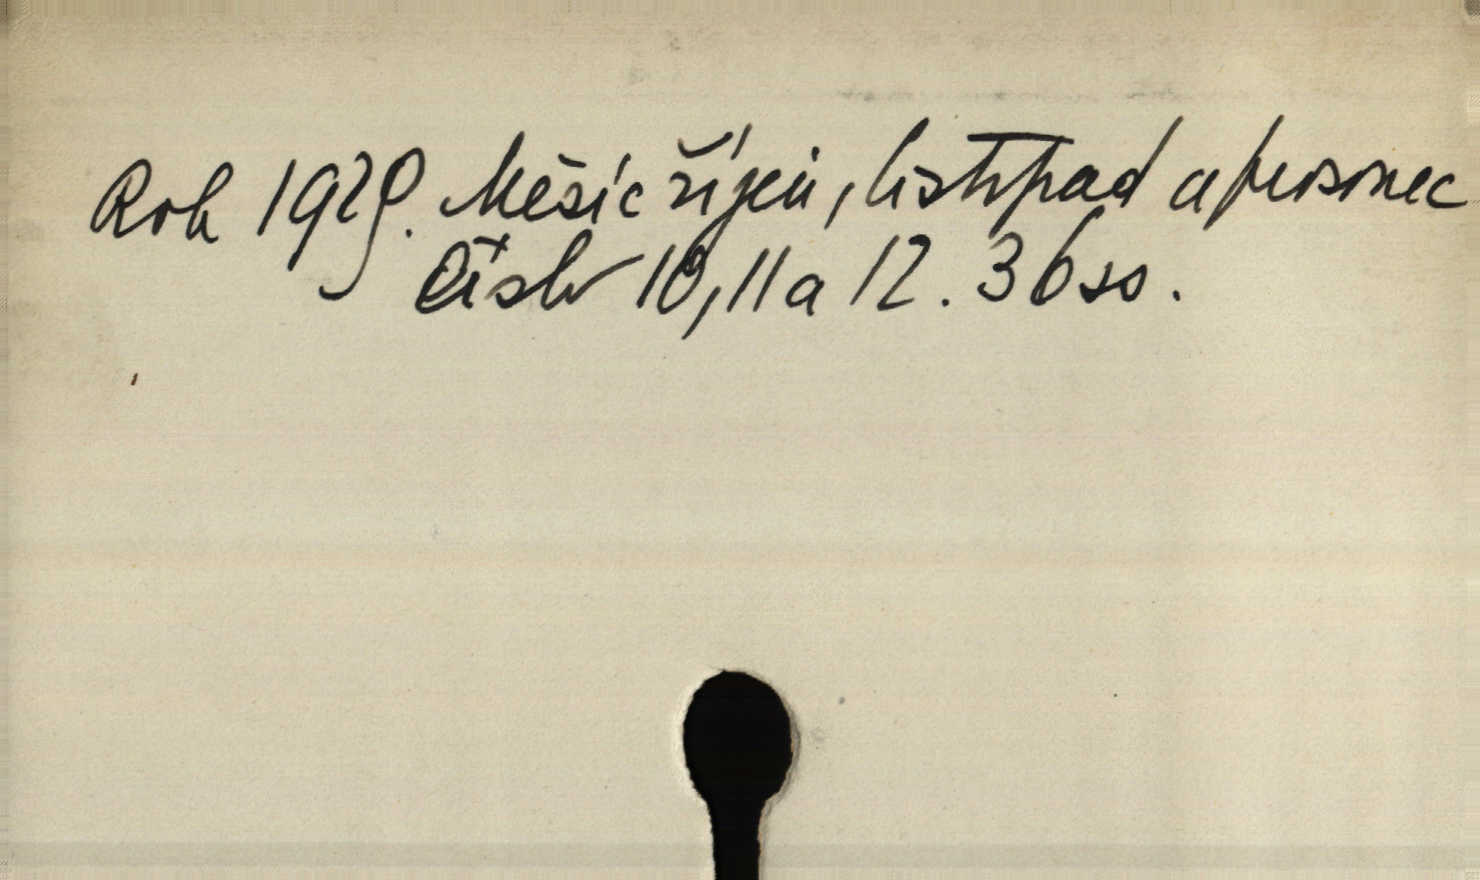 Rok 1929. Měsíc říjen, listopad a prosinec
Číslo 10, 11 a 12. 36 ss.